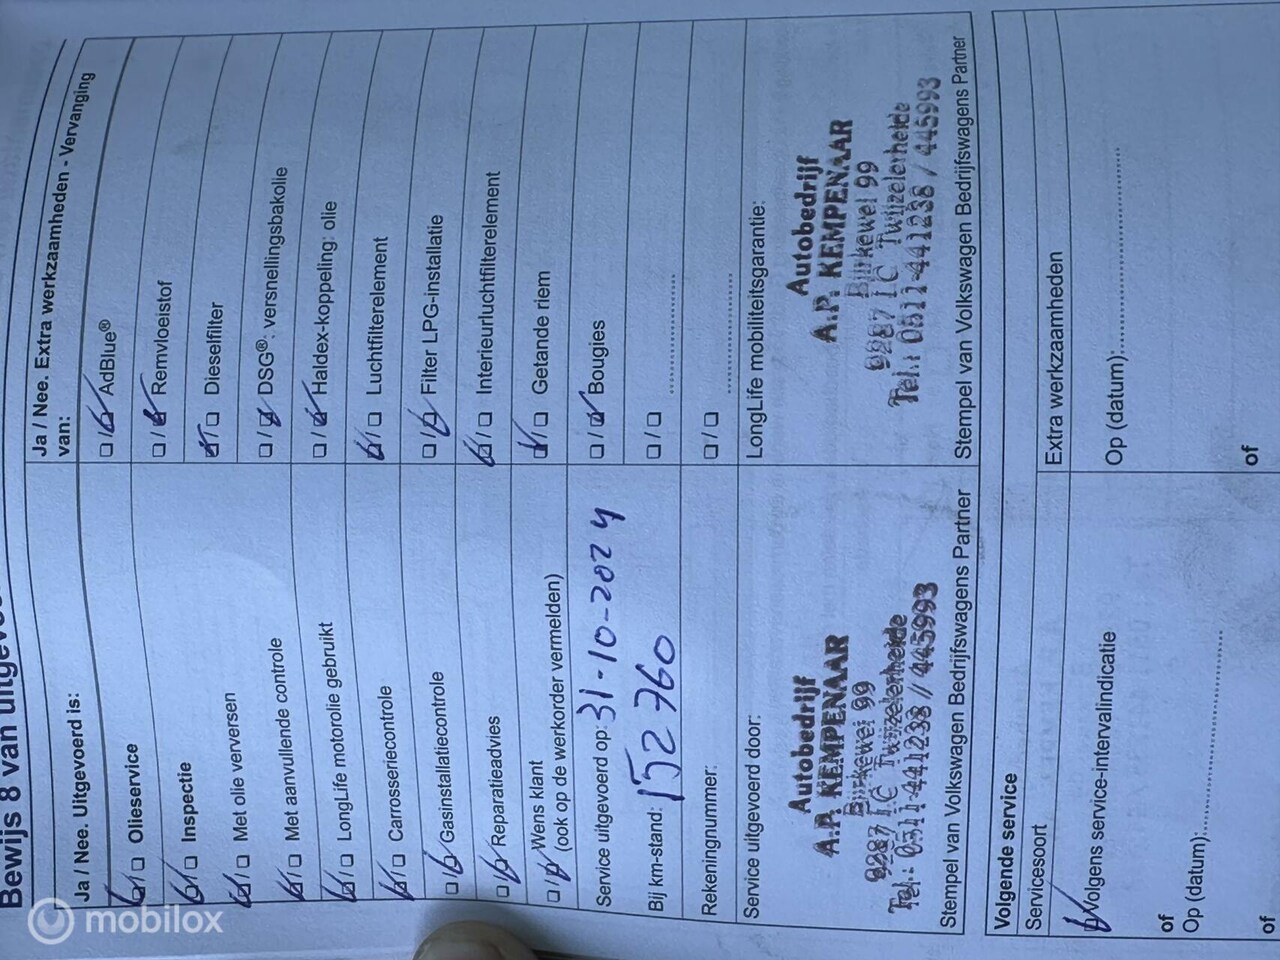 Bewijs 8 van uitgevoe
Ja / Nee. Uitgevoerd is:
☑/☐ Olieservice
☑/☐ Inspectie
☑/☐ Met olie verversen
☑/☐ Met aanvullende controle
☑/☐ LongLife motorolie gebruikt
☑/☐ Carrosseriecontrole
☐/☑ Gasinstallatiecontrole
☐/☑ Reparatieadvies
☐/☑ Wens klant
(ook op de werkorder vermelden)
Service uitgevoerd op: 31-10-2024
Bij km-stand: 152760
Rekeningnummer:
Service uitgevoerd door:
Autobedrijf
A.P. KEMPENAAR
Burkewei 99
9287 IC Twijzelerheide
Tel.: 0511-441238 / 445993
Stempel van Volkswagen Bedrijfswagens Partner
Ja / Nee. Extra werkzaamheden - Vervanging
van:
☐/☑ AdBlue®
☐/☑ Remvloeistof
☑/☐ Dieselfilter
☐/☑ DSG®: versnellingsbakolie
☐/☑ Haldex-koppeling: olie
☑/☐ Luchtfilterelement
☐/☑ Filter LPG-installatie
☑/☐ Interieurluchtfilterelement
☑/☐ Getande riem
☐/☑ Bougies
☐/☐ ....................
☐/☐ ....................
LongLife mobiliteitsgarantie:
Autobedrijf
A.P. KEMPENAAR
Burkewei 99
9287 IC Twijzelerheide
Tel.: 0511-441238 / 445993
Stempel van Volkswagen Bedrijfswagens Partner
Volgende service
Servicesoort
☑ Volgens service-intervalindicatie
of
Op (datum):....................
of
Extra werkzaamheden
Op (datum):....................
of
mobilox